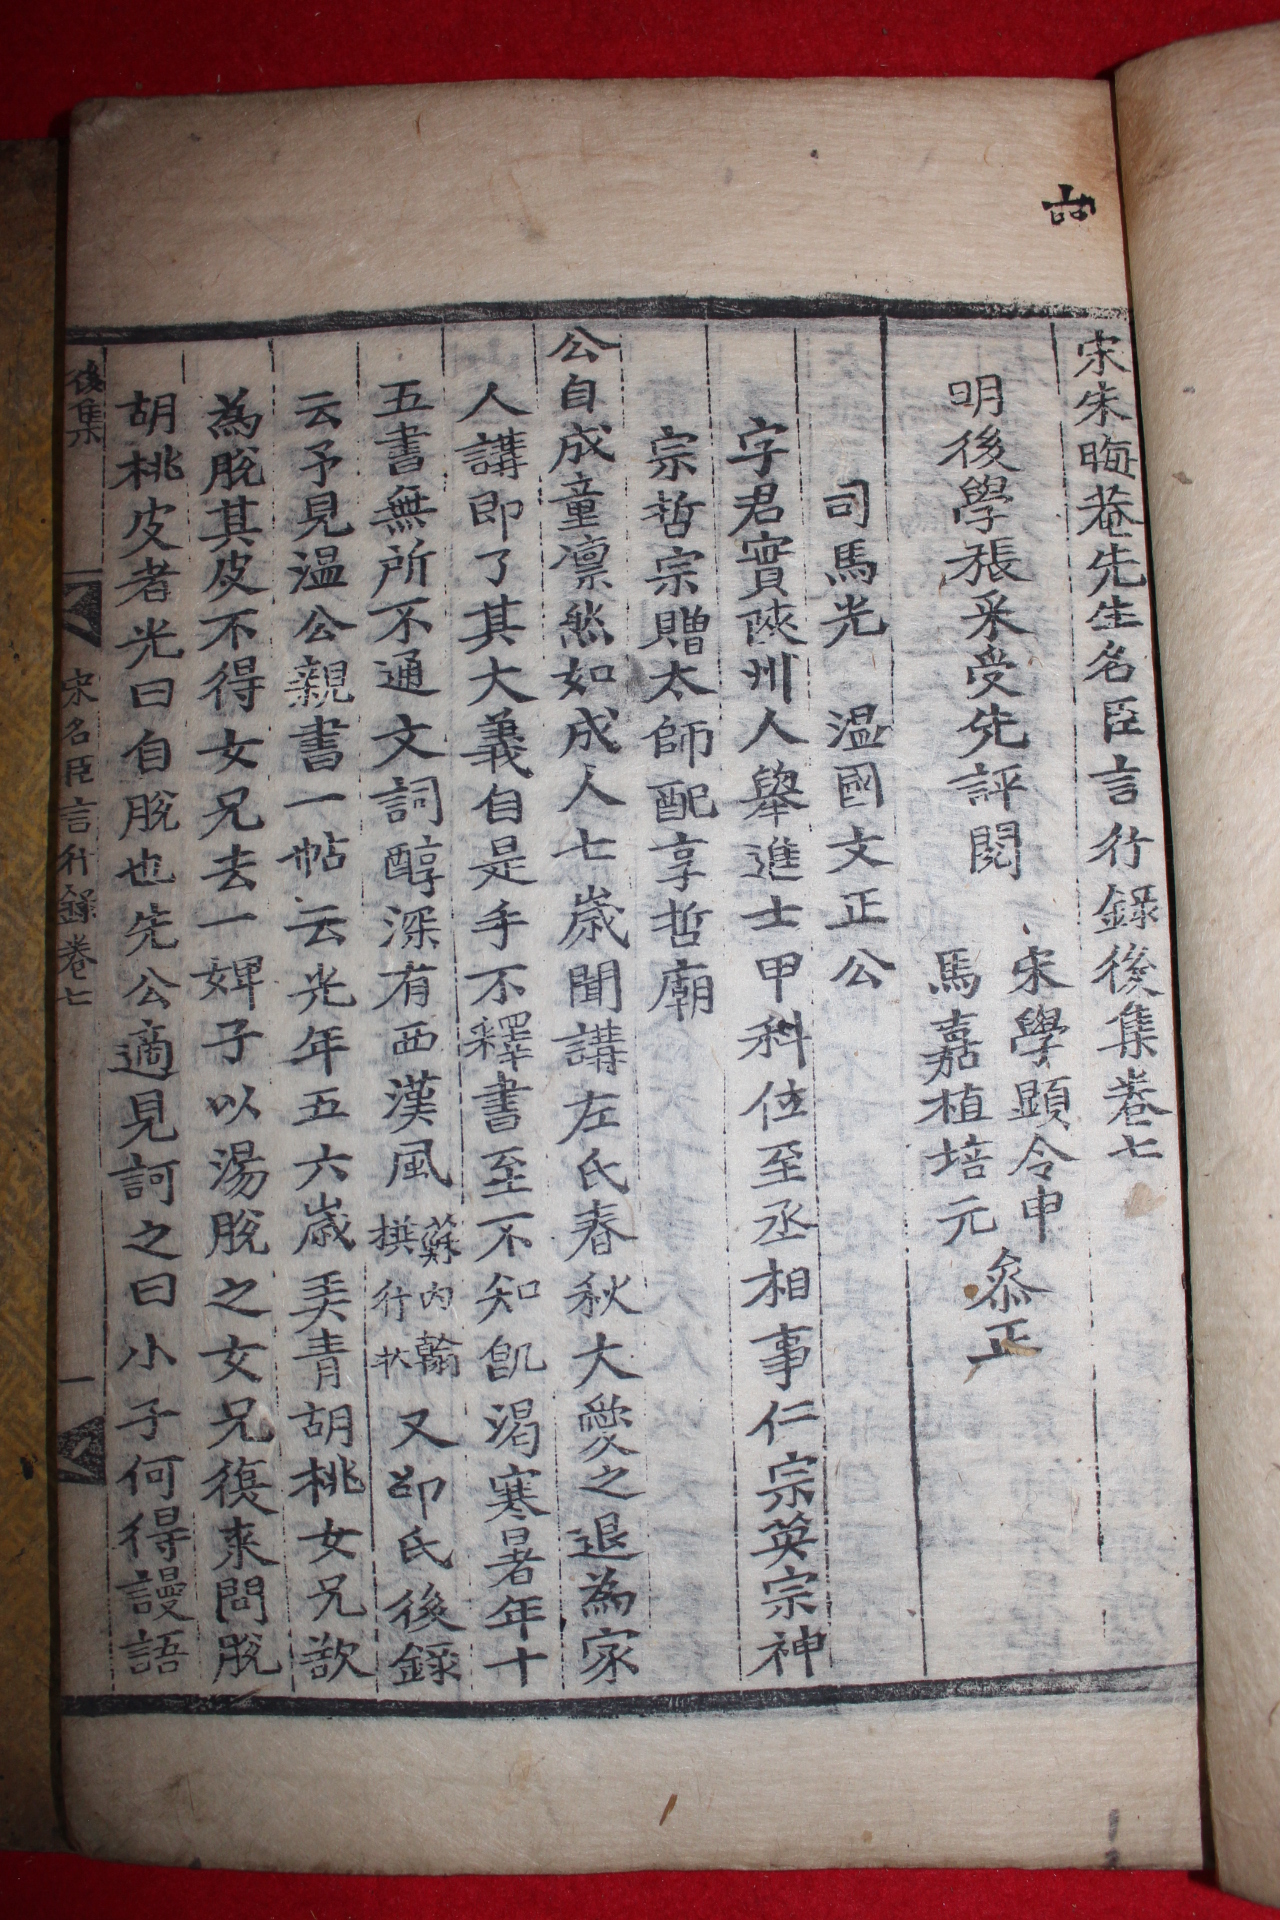 宋朱晦菴先生名臣言行錄後集卷七
明後學張采受先評閱
宋學顯令申
馬嘉植培元
叅正
司馬光 溫國文正公
字君實陝州人舉進士甲科位至丞相事仁宗英宗神
宗哲宗贈太師配享哲廟
公自成童凛然如成人七歲聞講左氏春秋大愛之退為家
人講即了其大義自是手不釋書至不知飢渴寒暑年十
五書無所不通文詞醇深有西漢風 蘇內翰撰行狀 又邵氏後錄
云予見溫公親書一帖云光年五六歲弄青胡桃女兄欲
為脫其皮不得女兄去一婢子以湯脫之女兄復来問脫
胡桃皮者光曰自脫也先公適見訶之曰小子何得謾語
後集
宋名臣言行錄卷七
一